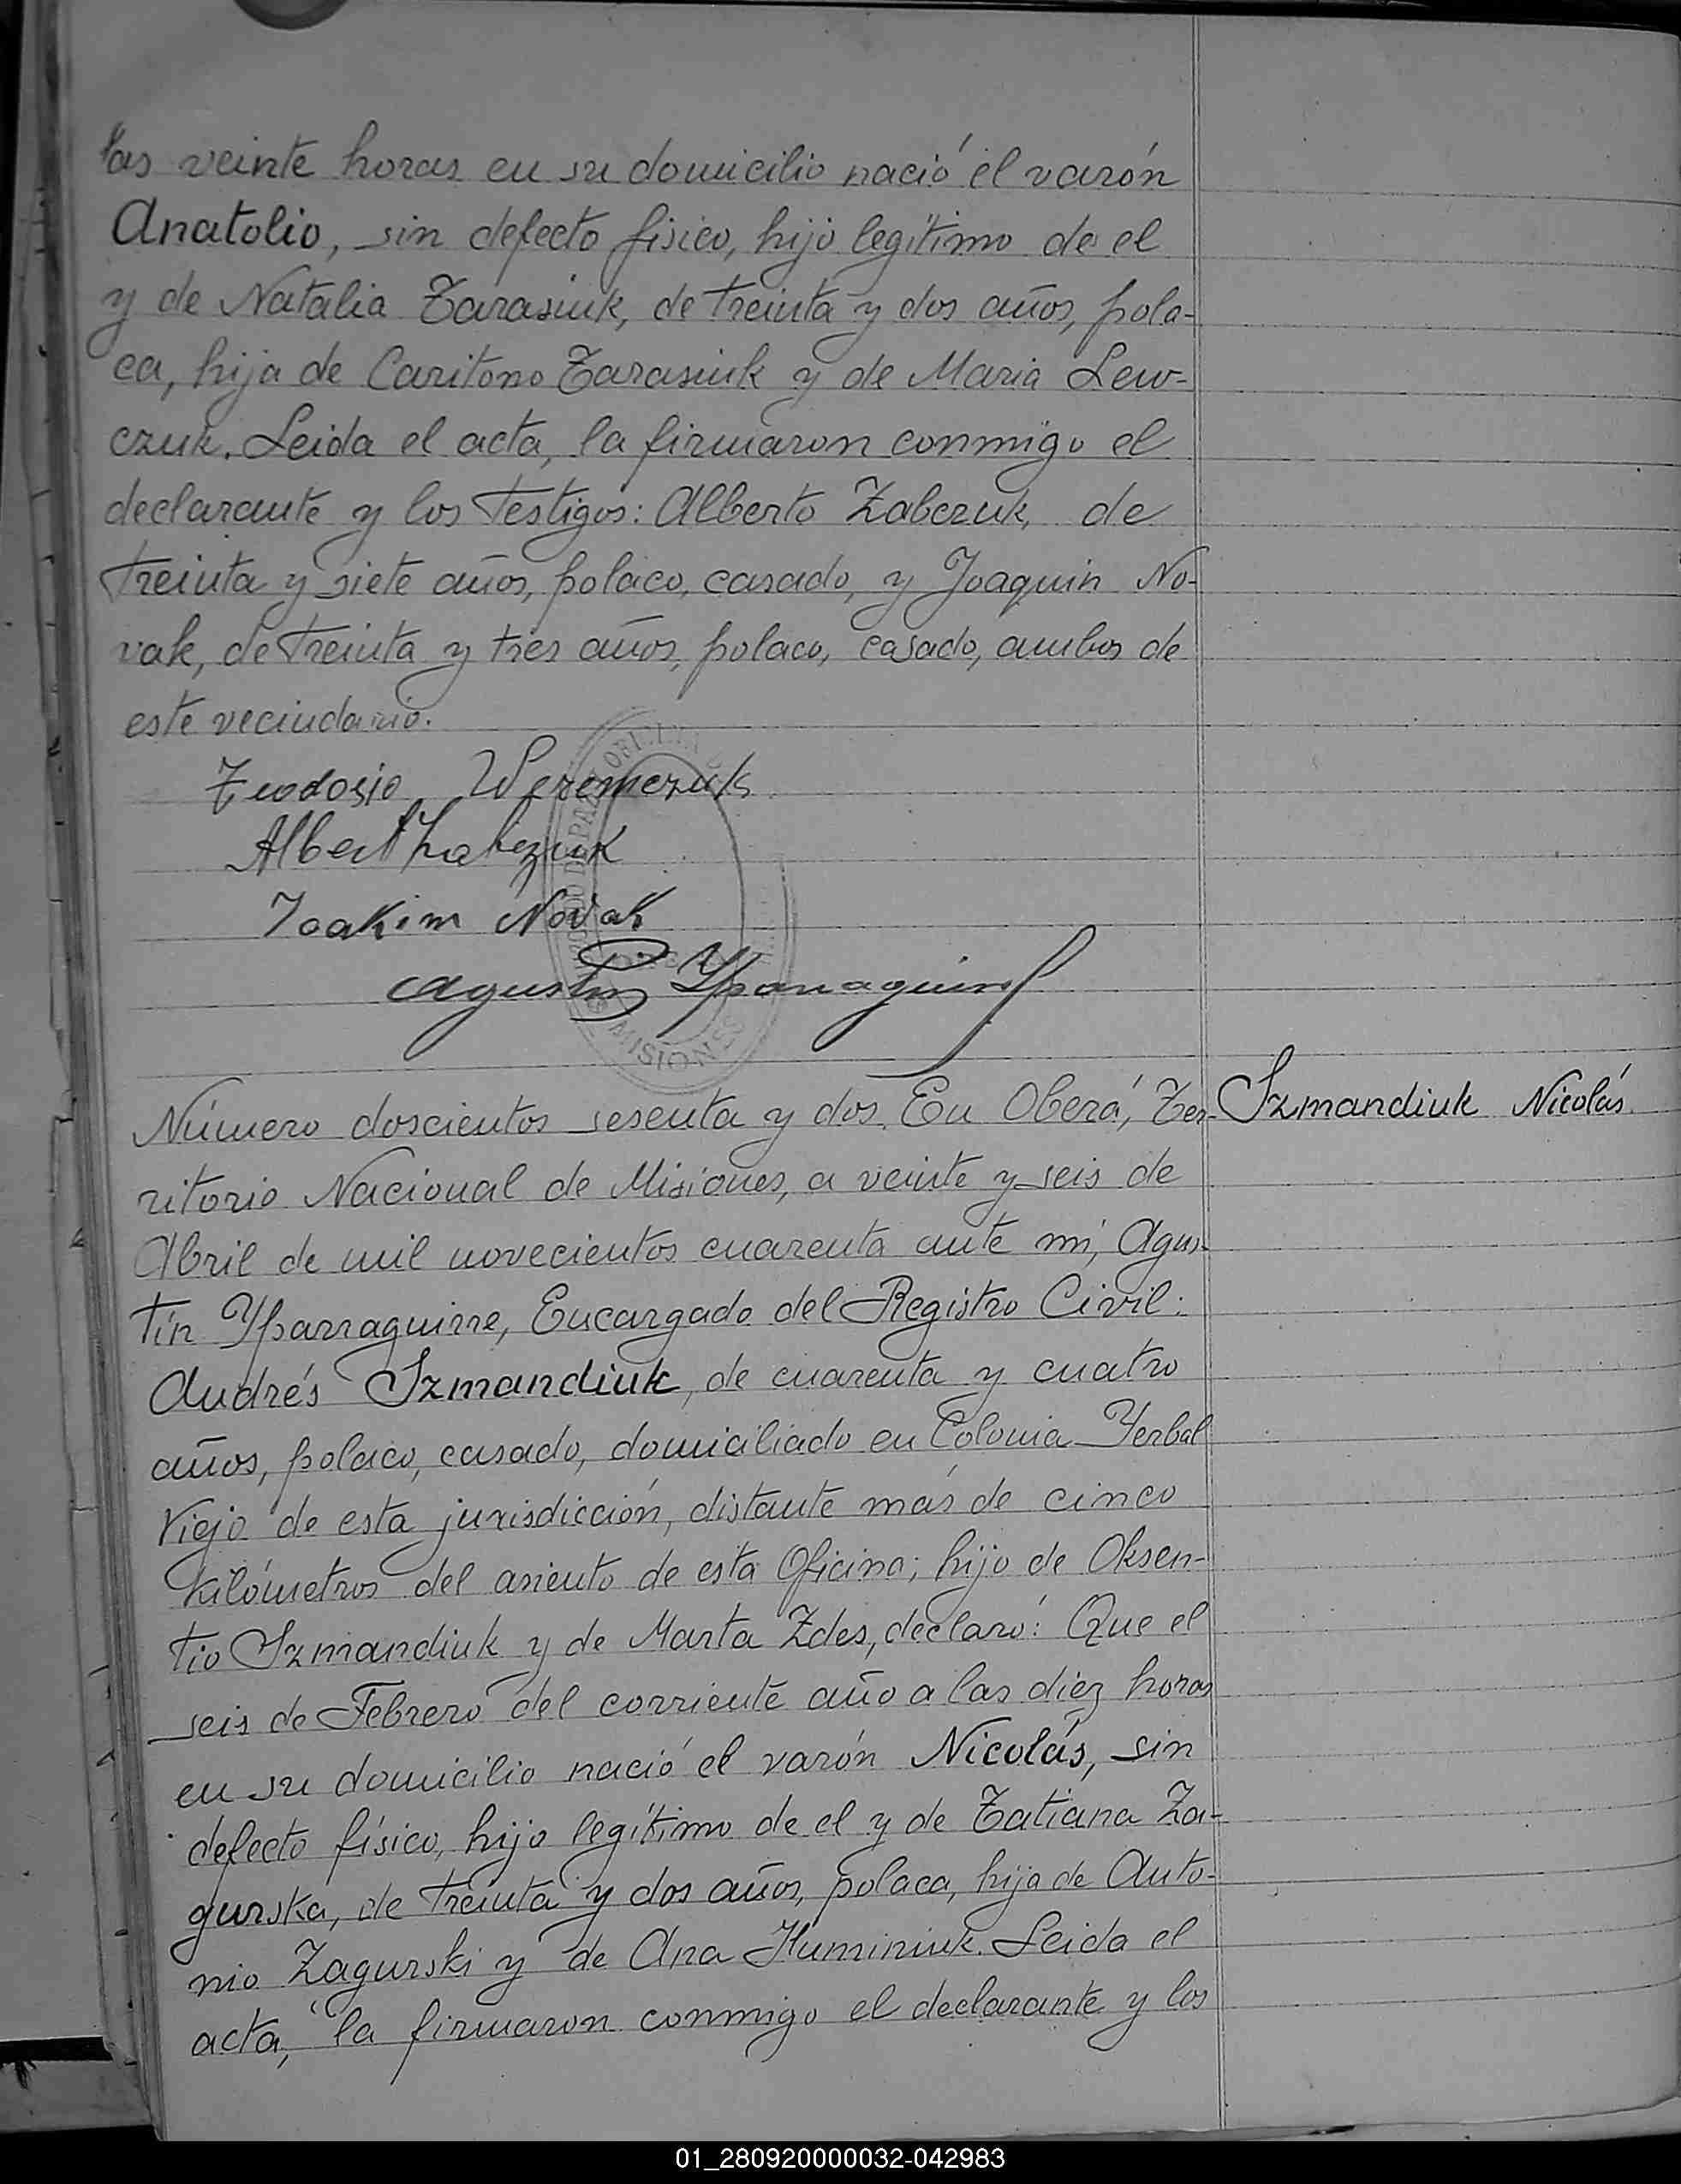 las veinte horas en su domicilio nació el varón
Anatolio, sin defecto fisico, hijo legítimo de el
y de Natalia Tarasiuk, de treinta y dos años, pola-
ca, hija de Caritono Tarasiuk y de Maria Lew-
czuk. Leida el acta, la firmaron conmigo el
declarante y los testigos: Alberto Zabczuk, de
treinta y siete años, polaco, casado, y Joaquin No-
vak, de treinta y tres años, polaco, casado, ambos de
este vecindario.
Teodosio Weremczuk
Albert Zabczuk
Joakim Novak
Agustin Yparraguirre
MISIONES
Número doscientos sesenta y dos. En Oberá, Ter-
Szmandiuk Nicolás.
ritorio Nacional de Misiones, a veinte y seis de
Abril de mil novecientos cuarenta ante mí, Agus-
tín Yparraguirre, Encargado del Registro Civil:
Andrés Szmandiuk, de cuarenta y cuatro
años, polaco, casado, domiciliado en Colonia Yerbal
Viejo de esta jurisdicción, distante más de cinco
kilómetros del asiento de esta Oficina; hijo de Oksen-
tio Szmandiuk y de Marta Zdes, declaró: Que el
seis de Febrero del corriente año a las diez horas
en su domicilio nació el varón Nicolás, sin
defecto físico, hijo legítimo de el y de Tatiana Za-
gurska, de treinta y dos años, polaca, hija de Anto-
nio Zagurski y de Ana Huminiuk. Leida el
acta, la firmaron conmigo el declarante y los
01_280920000032-042983